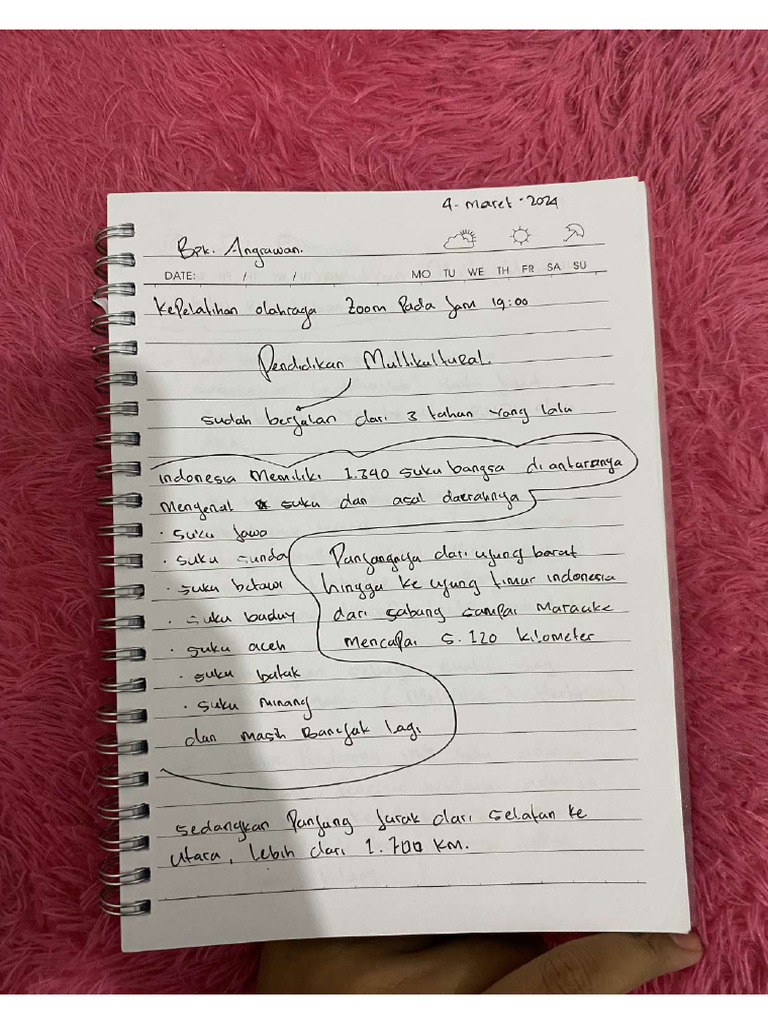 4. Maret. 2024
Bpk. Angrawan.
DATE: / / MO TU WE TH FR SA SU
Kepelatihan olahraga Zoom Pada Jam 19:00
Pendidikan Multikultural
sudah berjalan dari 3 tahun yang lalu
indonesia Memiliki 1.340 suku bangsa di antaranya
Mengenal suku dan asal daerahnya
• suku Jawa
• suku sunda
• suku betawi
• suku baduy
• suku aceh
• suku batak
• suku minang
dan masih Banyak lagi
Panjangnya dari ujung barat
hingga ke ujung timur indonesia
dari sabang sampai Marauke
Mencapai 5.120 kilometer
sedangkan Panjang Jarak dari selatan ke
Utara, lebih dari 1.700 KM.